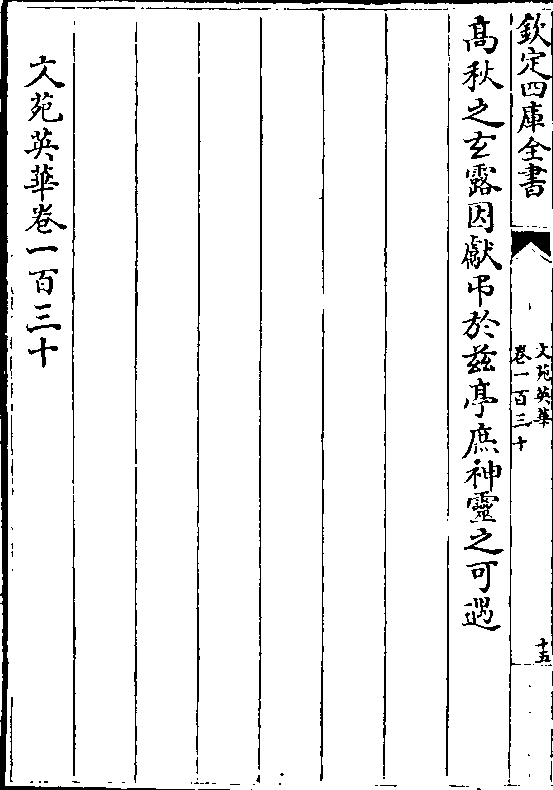 欽定四庫全書
文苑英華
卷一百三十
十五
髙秋之玄露因獻弔於兹亭庶神靈之可遇
文苑英華卷一百三十